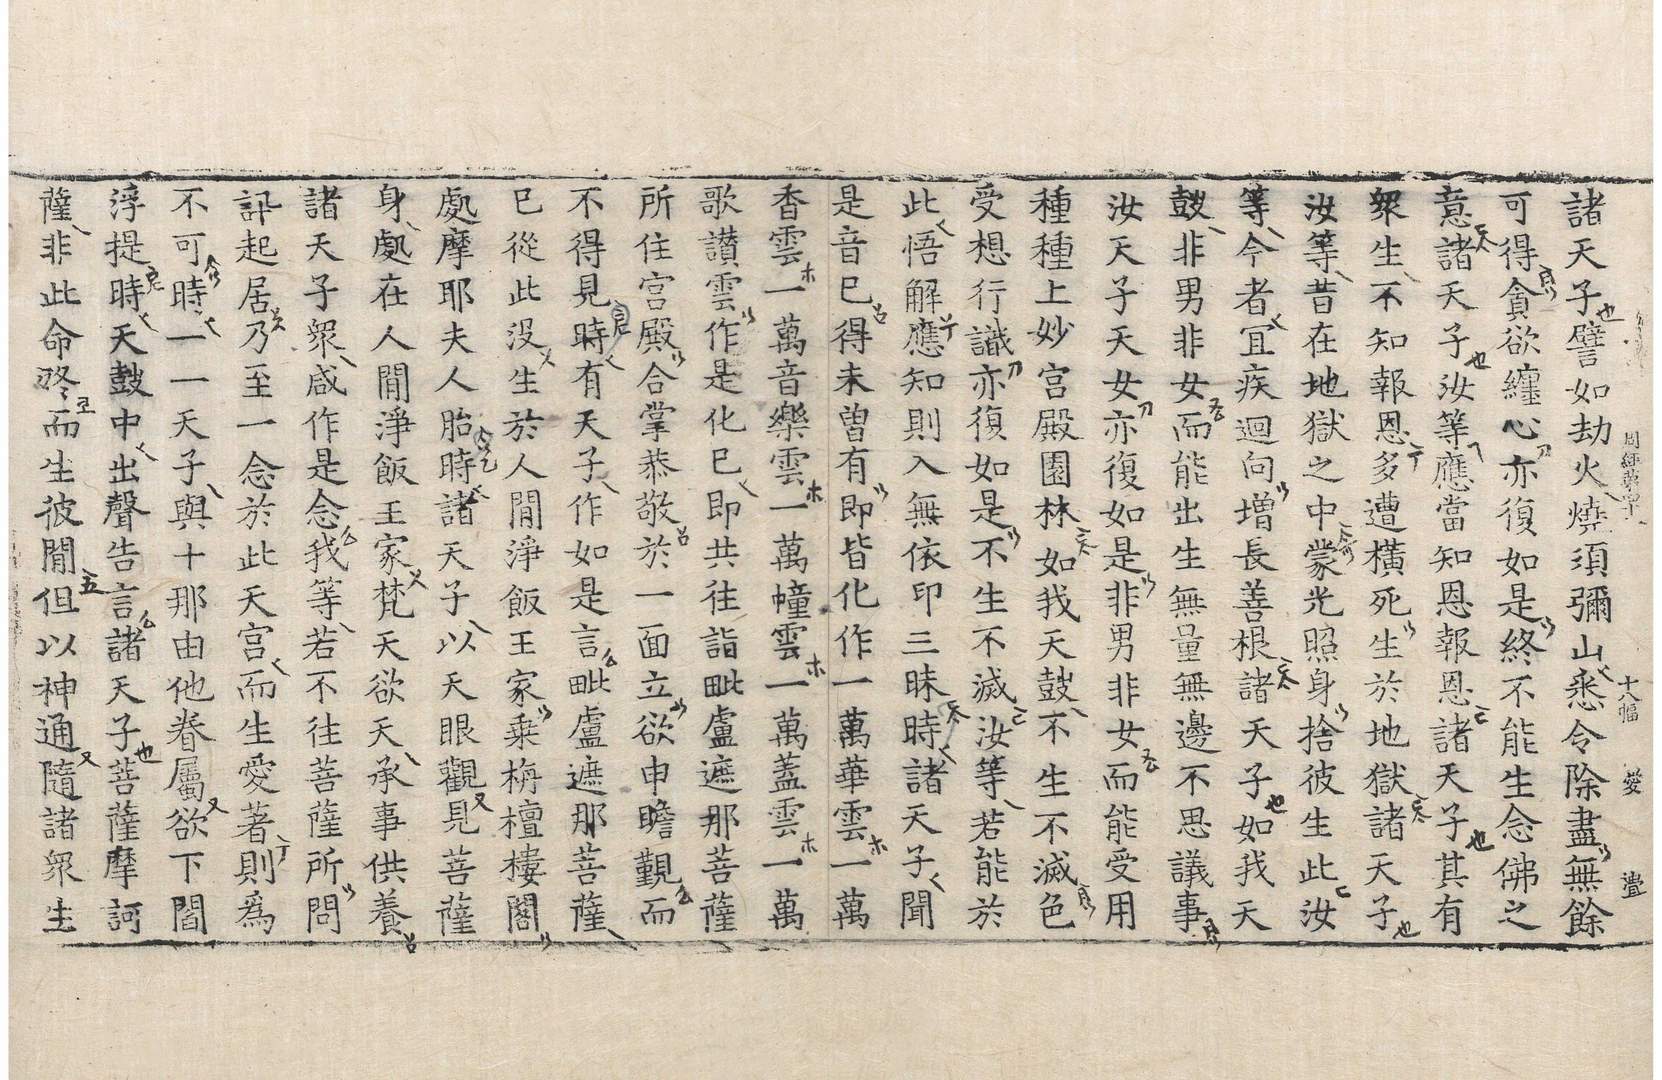 諸天子譬如劫火燒須彌山悉令除盡無餘
可得貪欲纏心亦復如是終不能生念佛之
意諸天子汝等應當知恩報恩諸天子其有
衆生不知報恩多遭橫死生於地獄諸天子
汝等昔在地獄之中蒙光照身捨彼生此汝
等今者宜疾迴向增長善根諸天子如我天
鼓非男非女而能出生無量無邊不思議事
汝天子天女亦復如是非男非女而能受用
種種上妙宮殿園林如我天鼓不生不滅色
受想行識亦復如是不生不滅汝等若能於
此悟解應知則入無依印三昧時諸天子聞
是音已得未曾有即皆化作一萬華雲一萬
香雲一萬音樂雲一萬幢雲一萬蓋雲一萬
歌讚雲作是化已即共往詣毗盧遮那菩薩
所住宮殿合掌恭敬於一面立欲申瞻覲而
不得見時有天子作如是言毗盧遮那菩薩
已從此沒生於人閒淨飯王家乗栴檀樓閣
處摩耶夫人胎時諸天子以天眼觀見菩薩
身處在人閒淨飯王家梵天欲天承事供養
諸天子衆咸作是念我等若不往菩薩所問
訊起居乃至一念於此天宮而生愛著則爲
不可時一一天子與十那由他眷屬欲下閻
浮提時天鼓中出聲告言諸天子菩薩摩訶
薩非此命終而生彼閒但以神通隨諸衆生